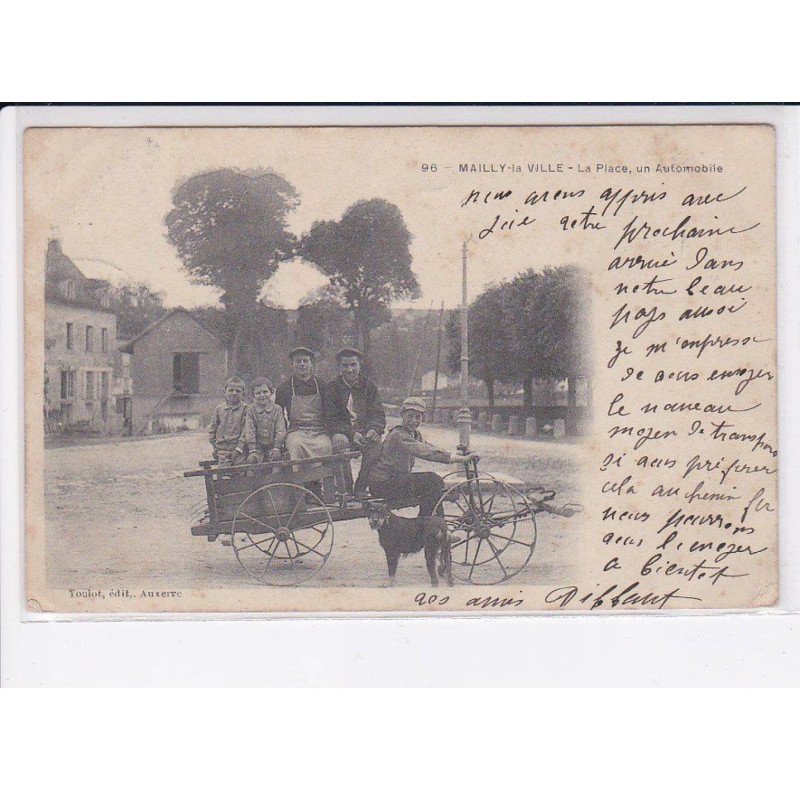 96 - MAILLY-la VILLE - La Place, un Automobile
nous avons appris avec
joie votre prochaine
arrivé dans
notre beau
pays aussi
je m'empresse
de vous envoyer
le nouveau
moyen de transport
si vous préférer
cela au chemin fer
nous pourrons
vous l'envoyer
a bientot
vos amis Diffaut
Toulot, édit., Auxerre